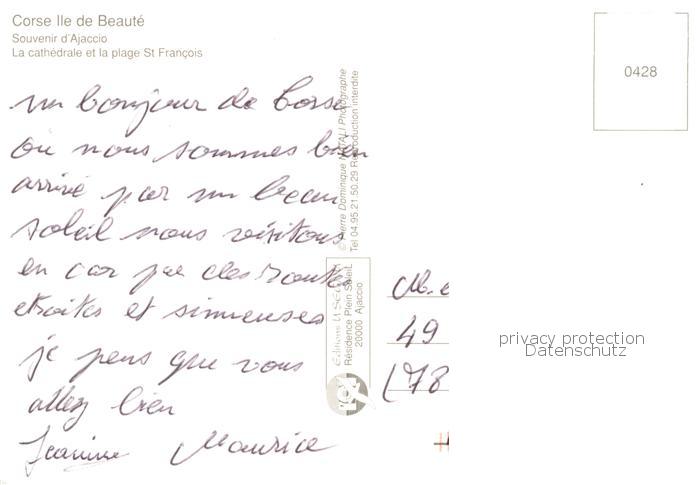 Corse Ile de Beauté
Souvenir d'Ajaccio
La cathédrale et la plage St François
0428
un bonjour de Corse
ou nous sommes bien
arrivé par un beau
soleil nous visitons
en car par des routes
etroites et sinueuses
je pens que vous
allez bien
Jeannine Maurice
© Pierre Dominique NATALI Photographe
Tel 04.95.21.50.29 Reproduction interdite
Editions U
Résidence Plein Soleil
20000 Ajaccio
M. e
49
(78
privacy protection
Datenschutz